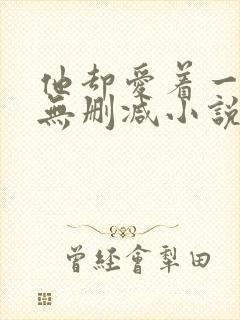 他却愛着一
無删减小説
曾經會犁田